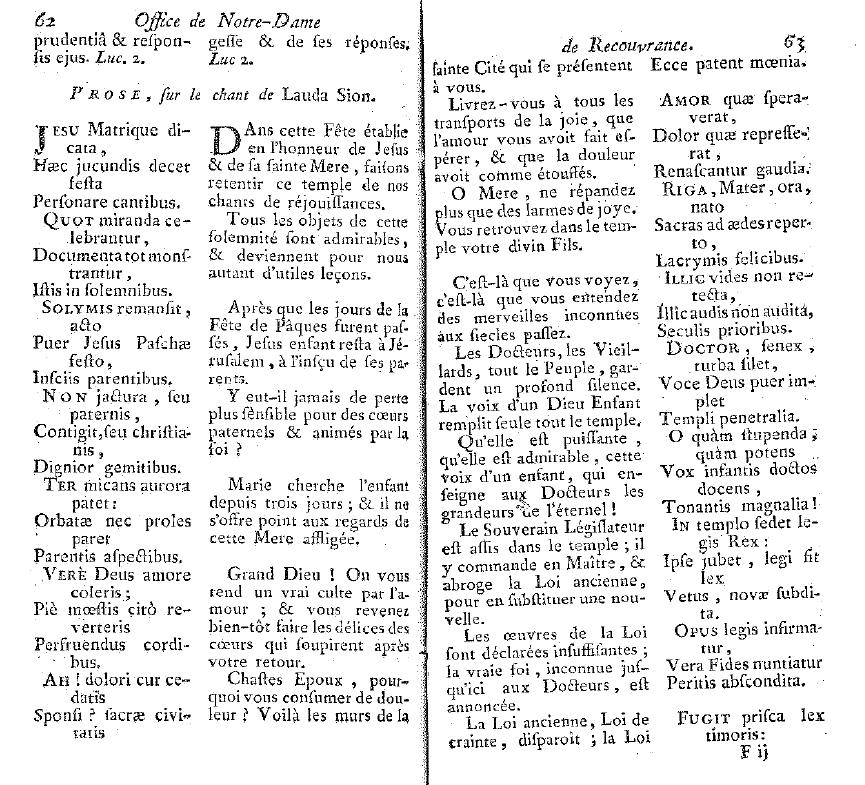 62 Office de Notre-Dame
prudentiâ & reſpon-
ſis ejus. Luc. 2.
geſſe & de ſes réponſes.
Luc 2.
PROSE, ſur le chant de Lauda Sion.
JESU Matrique di-
cata,
Hæc jucundis decet
feſta
Perſonare cantibus.
QUOT miranda ce-
lebrantur,
Documenta tot monſ-
trantur,
Iſtis in ſolemnibus.
SOLYMIS remanſit,
acto
Puer Jeſus Paſchæ
feſto,
Inſciis parentibus.
NON jactura, ſeu
paternis,
Contigit, ſeu chriſtia-
nis,
Dignior gemitibus.
TER micans aurora
patet:
Orbatæ nec proles
paret
Parentis aſpectibus.
VERÈ Deus amore
coleris;
Piè mœſtis citò re-
verteris
Perfruendus cordi-
bus.
AH! dolori cur ce-
datis
Sponſi? ſacræ civi-
tatis
DAns cette Fête établie
en l'honneur de Jeſus
& de ſa ſainte Mere, faiſons
retentir ce temple de nos
chants de réjouiſſances.
Tous les objets de cette
ſolemnité ſont admirables,
& deviennent pour nous
autant d'utiles leçons.
Après que les jours de la
Fête de Pâques furent paſ-
ſés, Jeſus enfant reſta à Jé-
ruſalem, à l'inſçu de ſes pa-
rents.
Y eut-il jamais de perte
plus ſenſible pour des cœurs
paternels & animés par la
foi?
Marie cherche l'enfant
depuis trois jours; & il ne
s'offre point aux regards de
cette Mere affligée.
Grand Dieu! On vous
rend un vrai culte par l'a-
mour; & vous revenez
bien-tôt faire les délices des
cœurs qui ſoupirent après
votre retour.
Chaſtes Epoux, pour-
quoi vous conſumer de dou-
leur? Voilà les murs de la
de Recouvrance. 63
ſainte Cité qui ſe préſentent
à vous.
Livrez-vous à tous les
tranſports de la joie, que
l'amour vous avoit fait eſ-
pérer, & que la douleur
avoit comme étouffés.
O Mere, ne répandez
plus que des larmes de joye.
Vous retrouvez dans le tem-
ple votre divin Fils.
C'eſt-là que vous voyez,
c'eſt-là que vous entendez
des merveilles inconnues
aux ſiecles paſſez.
Les Docteurs, les Vieil-
lards, tout le Peuple, gar-
dent un profond ſilence.
La voix d'un Dieu Enfant
remplit ſeule tout le temple.
Qu'elle eſt puiſſante,
qu'elle eſt admirable, cette
voix d'un enfant, qui en-
ſeigne aux Docteurs les
grandeurs de l'éternel!
Le Souverain Légiſlateur
eſt aſſis dans le temple; il
y commande en Maître, &
abroge la Loi ancienne,
pour en ſubſtituer une nou-
velle.
Les œuvres de la Loi
ſont déclarées inſuffiſantes;
la vraie foi, inconnue juſ-
qu'ici aux Docteurs, eſt
annoncée.
La Loi ancienne, Loi de
crainte, diſparoît; la Loi
Ecce patent mœnia.
AMOR quæ ſpera-
verat,
Dolor quæ repreſſe-
rat,
Renaſcantur gaudia.
RIGA, Mater, ora,
nato
Sacras ad ædes reper-
to,
Lacrymis felicibus.
ILLIC vides non re-
tecta,
Illic audis non audita,
Seculis prioribus.
DOCTOR, ſenex,
turba ſilet,
Voce Deus puer im-
plet
Templi penetralia.
O quàm ſtupenda;
quàm potens
Vox infantis doctos
docens,
Tonantis magnalia!
IN templo ſedet le-
gis Rex:
Ipſe jubet, legi ſit
lex
Vetus, novæ ſubdi-
ta.
OPUS legis infirma-
tur,
Vera Fides nuntiatur
Peritis abſcondita.
FUGIT priſca lex
timoris:
F ij